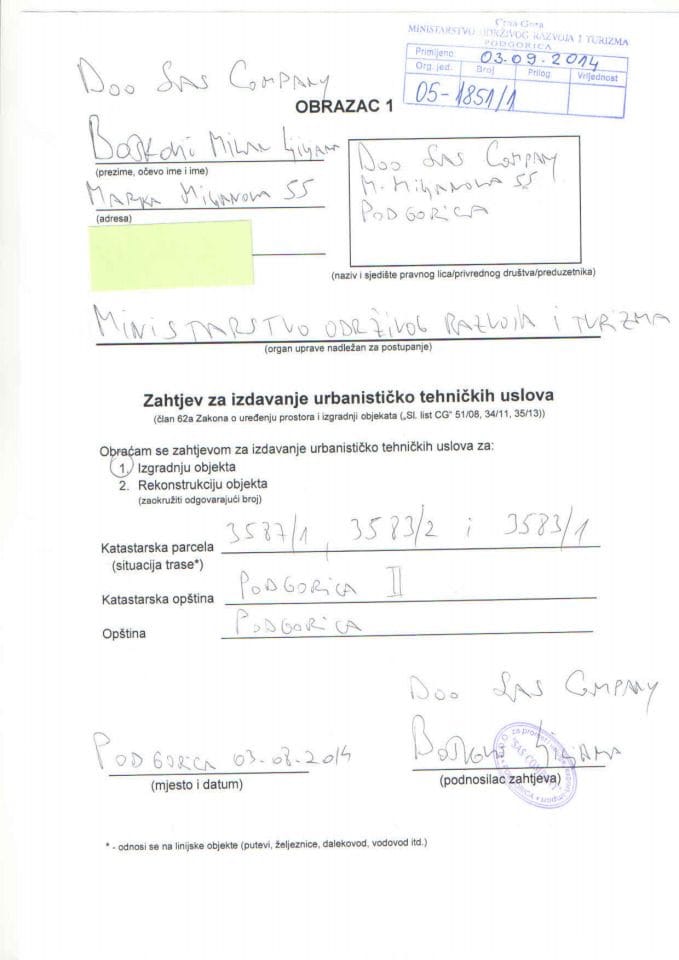 Crna Gora
MINISTARSTVO ODRŽIVOG RAZVOJA I TURIZMA
PODGORICA
Primljeno 03.09.2014
Org. jed. Broj Prilog Vrijednost
05-1851/1
Doo SAS COMPANY
OBRAZAC 1
Milan
(prezime, očevo ime i ime)
MARKA MILJANOVA 55
(adresa)
Doo SAS COMPANY
M. MILJANOVA 55
PODGORICA
(naziv i sjedište pravnog lica/privrednog društva/preduzetnika)
MINISTARSTVO ODRŽIVOG RAZVOJA I TURIZMA
(organ uprave nadležan za postupanje)
Zahtjev za izdavanje urbanističko tehničkih uslova
(član 62a Zakona o uređenju prostora i izgradnji objekata („Sl. list CG" 51/08, 34/11, 35/13))
Obraćam se zahtjevom za izdavanje urbanističko tehničkih uslova za:
1. Izgradnju objekta
2. Rekonstrukciju objekta
(zaokružiti odgovarajući broj)
Katastarska parcela 3587/1, 3583/2 i 3583/1
(situacija trase*)
Katastarska opština PODGORICA II
Opština PODGORICA
Doo SAS COMPANY
PODGORICA 03.08.2014
(mjesto i datum)
(podnosilac zahtjeva)
* - odnosi se na linijske objekte (putevi, željeznice, dalekovod, vodovod itd.)